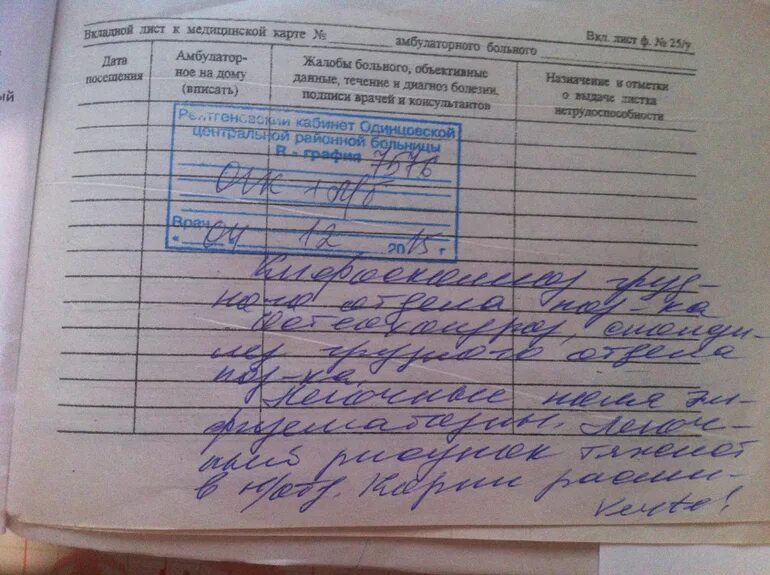 Вкладной лист к медицинской карте № амбулаторного больного Вкл. лист ф. № 25/у
Дата посещения
Амбулатор-
ное на дому
(вписать)
Жалобы больного, объективные
данные, течение и диагноз болезни,
подписи врачей и консультантов
Назначение и отметки
о выдаче листка
нетрудоспособности
ый
Рентгеновский кабинет Одинцовской
центральной районной больницы
R - графия 7576
ОГК
Врач
« 04 12 2015 г
Кифосколиоз груд-
ного отдела поз-ка
Остеохондроз, спонди-
лез грудного отдела
поз-ка.
Легочные поля эм-
физематозны. Легоч-
ный рисунок тяжист
в н/отд. Корни расши-